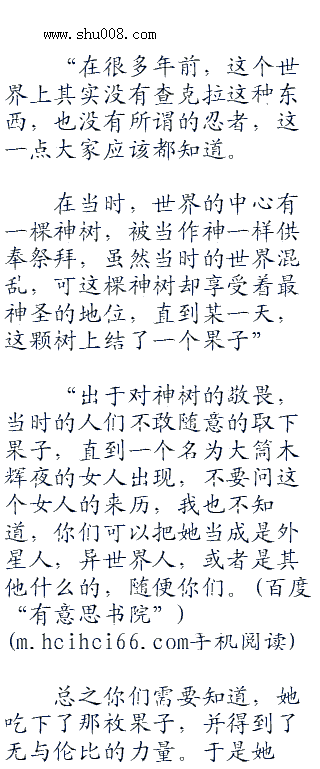 www.shu008.com
“在很多年前，这个世
界上其实没有查克拉这种东
西，也没有所谓的忍者，这
一点大家应该都知道。
在当时，世界的中心有
一棵神树，被当作神一样供
奉祭拜，虽然当时的世界混
乱，可这棵神树却享受着最
神圣的地位，直到某一天，
这颗树上结了一个果子”
“出于对神树的敬畏，
当时的人们不敢随意的取下
果子，直到一个名为大筒木
辉夜的女人出现，不要问这
个女人的来历，我也不知
道，你们可以把她当成是外
星人，异世界人，或者是其
他什么的，随便你们。(百度
“有意思书院”)
(m.hcihci66.com手机阅读)
总之你们需要知道，她
吃下了那枚果子，并得到了
无与伦比的力量。于是她